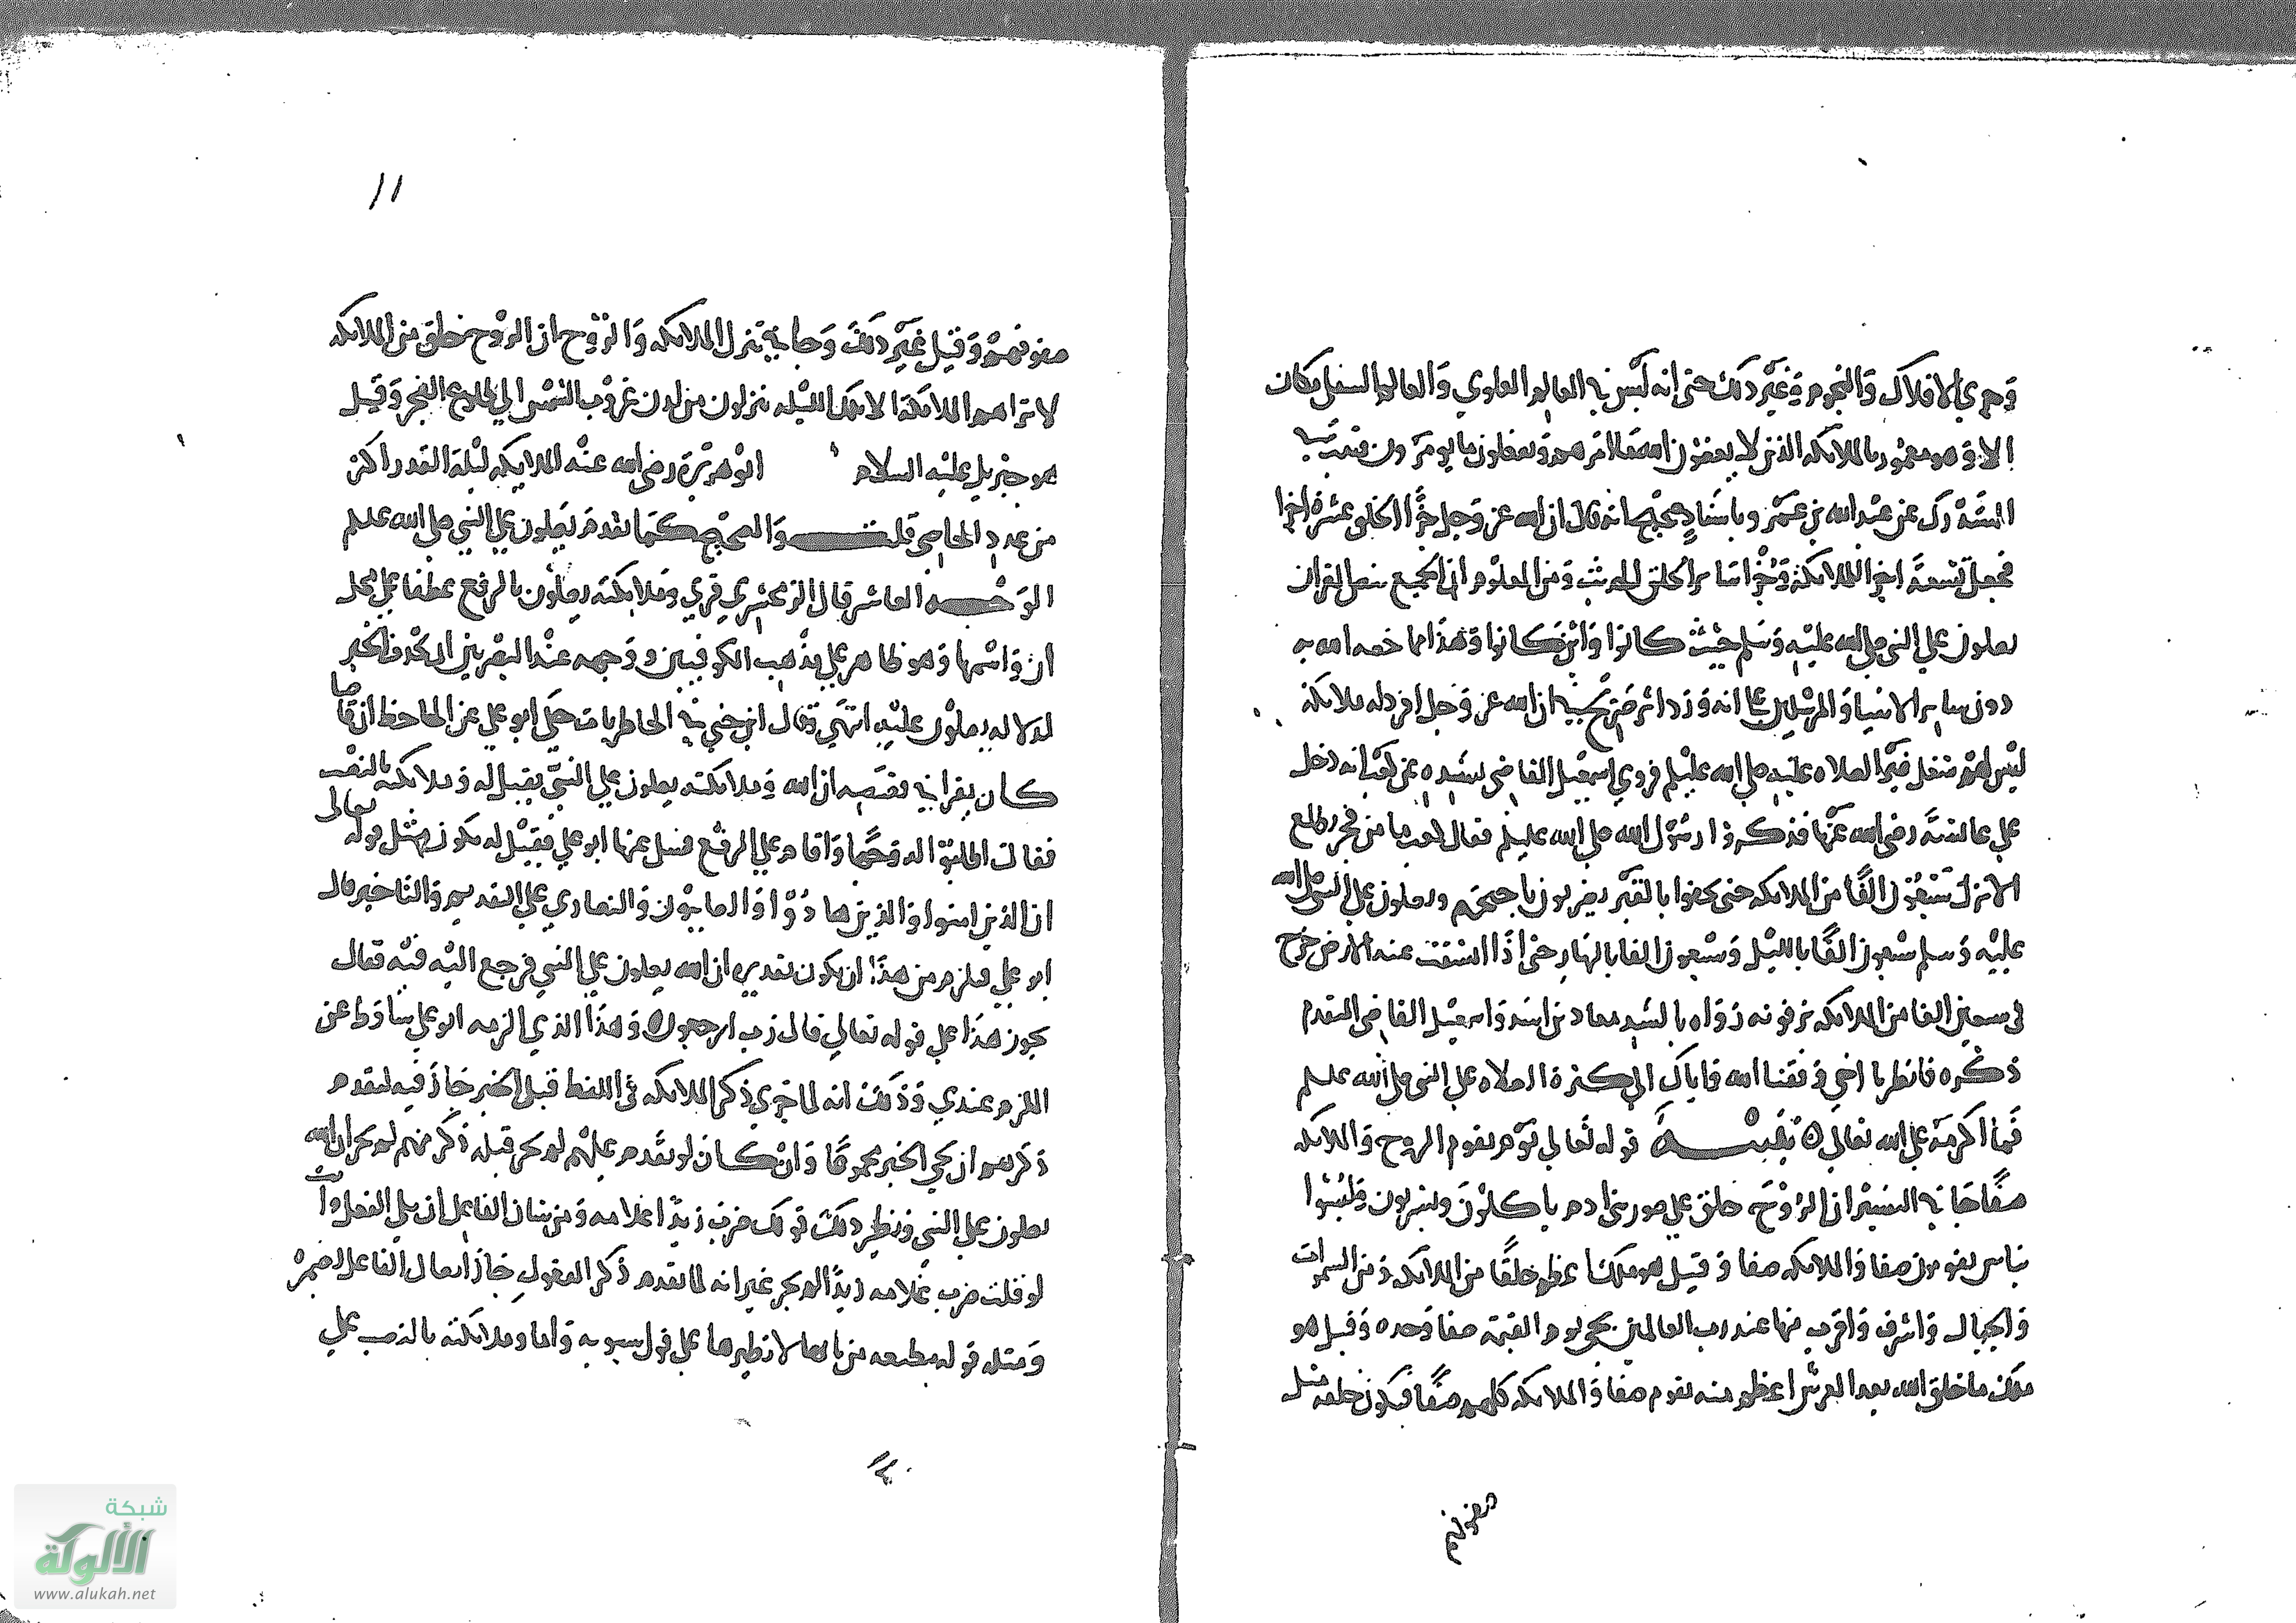 وجري الافلاك والنجوم وغير ذلك حتى انه ليس في العالم العلوي والعالم السفلي مكان
الا وهو معمور بالملائكه الذين لا يعصون الله ما امرهم ويفعلون ما يومرون وقد ثبت في
المستدرك عن عبد الله بن عمرو باسناد صحيح انه قال ان الله عز وجل جزا الخلق عشرة اجزا
فجعل تسعة اجزا الملائكة وجزا سائر الخلق الحديث ومن المعلوم ان الجميع بنص القران
يصلون علي النبي صلي الله عليه وسلم حيث كانوا واين كانوا وهذا مما خصه الله به
دون ساير الانبيا والمرسلين علي انه ورد اثر صريح فيه ان الله عز وجل افرد له ملائكة
ليس لهم شغل غير الصلاه عليه صلي الله عليه وسلم فروي اسمعيل القاضي بسنده عن كعب انه دخل
علي عائشة رضي الله عنها فذكروا رسول الله صلي الله عليه وسلم فقال كعب ما من فجر يطلع
الا نزل سبعون الفا من الملائكه حتى يحفوا بالقبر يضربون باجنحتهم ويصلون علي النبي صلي الله
عليه وسلم سبعون الفا بالليل وسبعون الفا بالنهار حتى اذا انشقت عنه الارض خرج
في سبعين الفا من الملائكه يزفونه رواه بالسند معاذ بن اسد واسمعيل القاضي المتقدم
ذكره فانظر يا اخي وفقنا الله واياك الي كثرة الصلاه علي النبي صلي الله عليه وسلم
فما اكرمه علي الله تعالي تنبيه قوله تعالي يوم يقوم الروح والملائكه
صفا جا في التفسير ان الروح خلق علي صورة بني ادم ياكلون ويشربون وليسوا
بناس يقومون صفا والملائكه صفا وقيل هو ملك اعظم خلقا من الملائكه ومن السموات
والجبال واشرف واقرب منها عند رب العالمين يجي يوم القيمة صفا وحده وقيل هو
ملك ما خلق الله بعد العرش اعظم منه يقوم صفا والملائكه كلهم صفا فيكون خلقه مثل
صفوفهم
١١
صفوفهم وقيل غير ذلك وجا في تنزل الملائكه والروح ان الروح خلق من الملائكه
لا تراهم الملائكة الا تلك الليله ينزلون من لدن غروب الشمس الي طلوع الفجر وقيل
هو جبريل عليه السلام ابو هريرة رضي الله عنه الملايكه ليلة القدر اكثر
من عدد الحصى قلت والصحيح كما تقدم يصلون علي النبي صلي الله عليه وسلم
الوجه العاشر قال الزمخشري قري وملائكته يصلون بالرفع عطفا علي محل
ان واسمها وهو ظاهر علي مذهب الكوفيين ووجهه عند البصريين ان يحذف الخبر
لدلالة يصلون عليه انتهي وقال ابن جني في الخاطريات حكي ابو علي عن الجاحظ ان قاصا
كان يقرا في قصصه ان الله وملائكته يصلون علي النبي فقيل له وملائكته بالنصب
فقال اطلبوا له وجها واقام علي الرفع فسئل عنها ابو علي فقيل له يكون مثل قوله تعالى
ان الذين امنوا والذين هادوا والصابئون والنصاري علي التقديم والتاخير قال
ابو علي فيلزم من هذا ان يكون تقديره ان الله يصلون علي النبي فرجع اليه فيه فقال
يجوز هذا علي قوله تعالي قال رب ارجعون وهذا الذي الزمه ابو علي ساقط عن
الملزم عندي وذلك انه لما جري ذكر الملائكه في اللفظ قبل الخبر جاز فيه لتقدم
ذكرهم ان يجي الخبر مجموعا وان كان لو تقدم عليهم لم يجر قبله ذكر منهم لم يجز ان الله
يصلون علي النبي ونظير ذلك قولك ضرب زيدا غلامه ومن شان الفاعل ان يلي الفعل وانت
لو قلت ضرب غلامه زيدا لم يجز غير انه لما تقدم ذكر المفعول جاز اتصال الفاعل بضميره
ومثله قوله من بابها لا نظيرها علي قول سيبويه واما وملائكته بالنصب علي